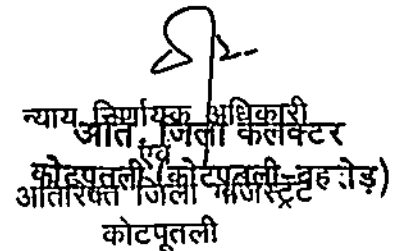 न्याय निर्णायक अधिकारी
अति. जिला कलेक्टर
एवं
कोटपूतली (कोटपूतली-बहरोड़)
अतिरिक्त जिला मजिस्ट्रेट
कोटपूतली